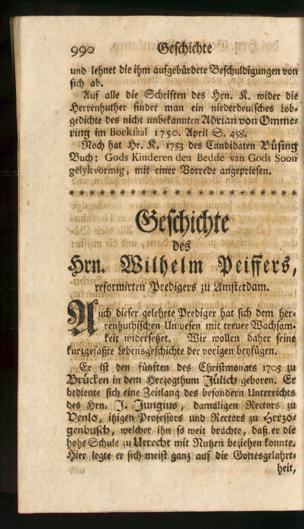 990 Geschichte
und lehnet die ihm aufgebürdete Beschuldigungen von
sich ab.
Auf alle die Schriften des Hrn. K. wider die
Herrenhuther findet man ein niederdeutsches Lob-
gedichte des nicht unbekannten Adrian von Omme-
ring im Boekzaal 1750. April S. 458.
Noch hat Hr. K. 1753 des Candidaten Büsing
Buch: Gods Kinderen den Bedde van Gods Soon
gelykvormig, mit einer Vorrede angepriesen.
Geschichte
des
Hrn. Wilhelm Peiffers,
reformirten Predigers zu Amsterdam.
Auch dieser gelehrte Prediger hat sich dem her-
renhuthischen Unwesen mit treuer Wachsam-
keit widersetzet. Wir wollen daher seine
kurzgefaßte Lebensgeschichte der vorigen beyfügen.
Er ist den fünften des Christmonats 1705 zu
Brücken in dem Herzogthum Jülich geboren. Er
bediente sich eine Zeitlang des besondern Unterrichts
des Hrn. J. Jungius, damaligen Rectors zu
Venlo, itzigen Professors und Rectors zu Herzo-
genbusch, welcher ihn so weit brachte, daß er die
hohe Schule zu Utrecht mit Nutzen beziehen konnte.
Hier legte er sich meist ganz auf die Gottesgelahrt-
heit,